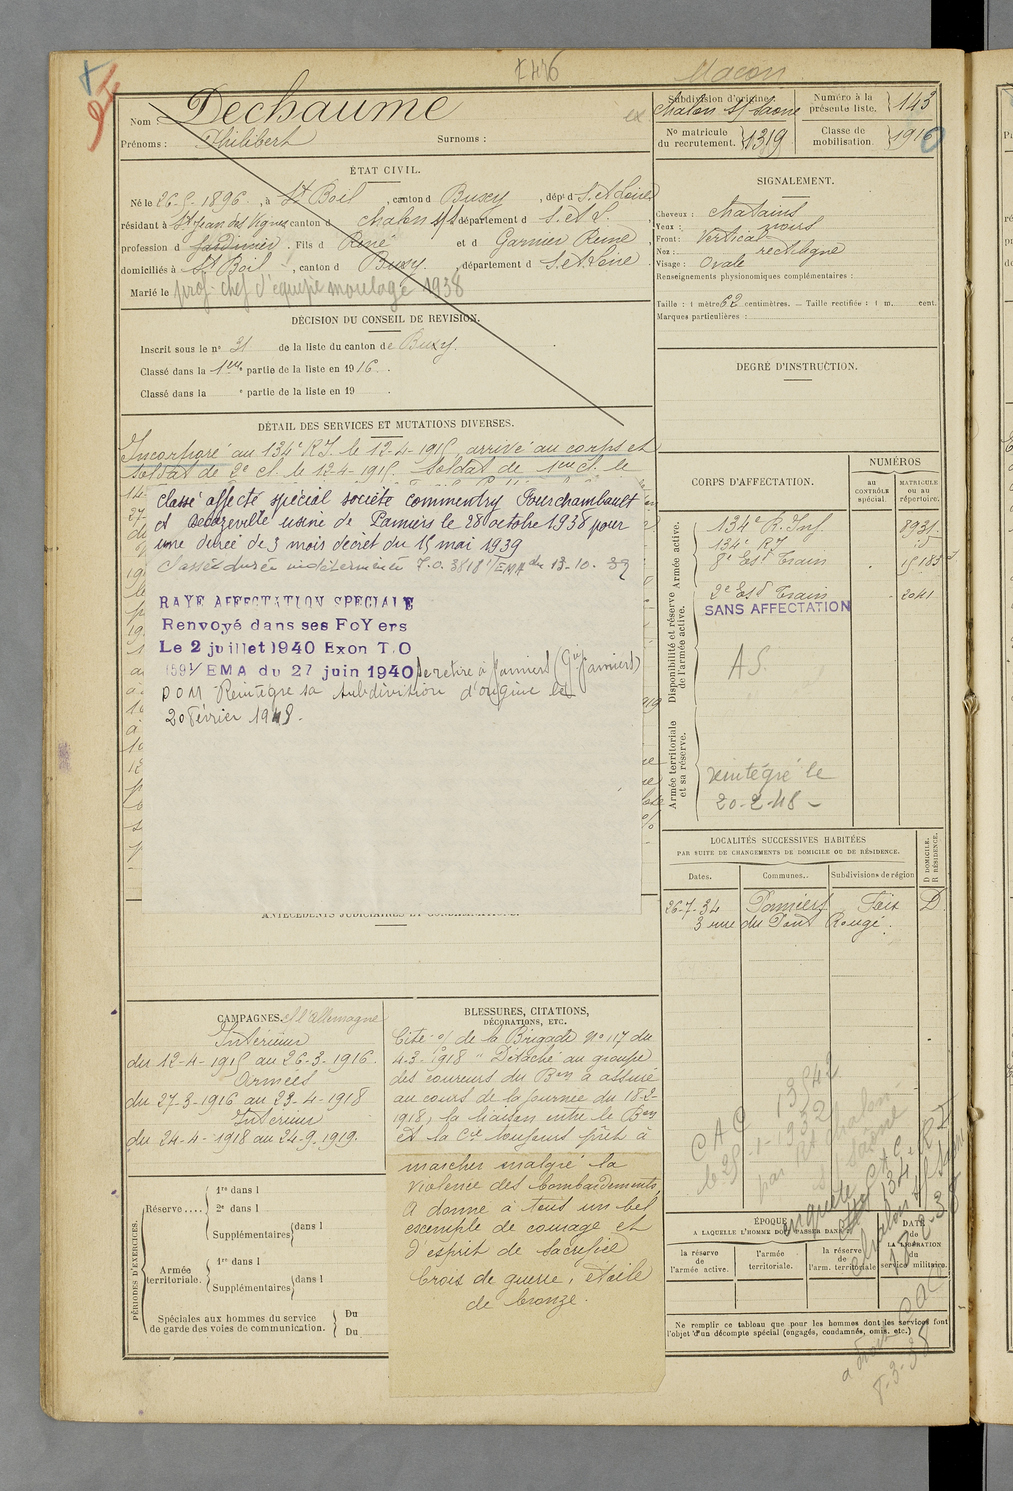 Macon
Nom : Dechaume
Prénoms : Philibert Surnoms :
ÉTAT CIVIL.
Né le 26-5-1896, à St Boil, canton d Buxy, dépt d S.et Loire
résidant à St Jean des Vignes canton d Chalon s/s département d S. et L.
profession d Jardinier. Fils d René et d Garnier Reine
domiciliés à St Boil, canton d Buxy, département d S.et Loire
Marié le prof. chef d'équipe moulage 1938
DÉCISION DU CONSEIL DE REVISION.
Inscrit sous le no 31 de la liste du canton de Buxy.
Classé dans la 1ère partie de la liste en 1916.
Classé dans la e partie de la liste en 19 .
DÉTAIL DES SERVICES ET MUTATIONS DIVERSES.
Incorporé au 134e R.I. le 12-4-1915 arrivé au corps et
soldat de 2e cl. le 12-4-1915 Soldat de 1ère cl. le
Classé affecté spécial société Commentry Fourchambault
et Decazeville usine de Pamiers le 28 octobre 1938 pour
une durée de 3 mois décret du 15 mai 1939
Classé durée indéterminée T.O. 3818 1/EMA du 13-10-39
RAYE AFFECTATION SPECIALE
Renvoyé dans ses FoYers
Le 2 juillet 1940 Exon T.O
1591/EMA du 27 juin 1940 se retire à Pamiers
DOM Réintégré sa subdivision d'origine le
20 Février 1948.
ANTÉCÉDENTS JUDICIAIRES ET CONDAMNATIONS.
CAMPAGNES. C/ l'Allemagne
Intérieur
du 12-4-1915 au 26-3-1916.
Armées
du 27-3-1916 au 23-4-1918
Intérieur
du 24-4-1918 au 24-9-1919.
PÉRIODES D'EXERCICES.
Réserve....
1re dans l
2e dans l
Supplémentaires dans l
Armée territoriale.
1re dans l
Supplémentaires dans l
Spéciales aux hommes du service
de garde des voies de communication.
Du
Du
BLESSURES, CITATIONS,
DÉCORATIONS, ETC.
Cité o/ de la Brigade No 17 du
4-3-1918 "Détaché au groupe
des coureurs du Bon a assuré
au cours de la journée du 18-2-
1918, la liaison entre le Bon
et la Cie toujours prêt à
marcher malgré la
violence des bombardements
A donné à tous un bel
exemple de courage et
d'esprit de sacrifice
Croix de guerre, étoile
de bronze.
Subdivision d'origine.
Chalon s/Saone
Numéro à la présente liste. 143
No matricule du recrutement. 1319
Classe de mobilisation. 1910
SIGNALEMENT.
Cheveux : chatains
Yeux : noirs
Front : Vertical
Nez : rectiligne
Visage : Ovale
Renseignements physionomiques complémentaires :
Taille : 1 mètre 62 centimètres. — Taille rectifiée : 1 m. cent.
Marques particulières :
DEGRÉ D'INSTRUCTION.
CORPS D'AFFECTATION.
NUMÉROS
au CONTRÔLE spécial.
MATRICULE ou au répertoire.
Armée active.
134e R. Inf.
134e R.I.
8e Esd Train
Disponibilité et réserve de l'armée active.
2e Esd Train 2041
SANS AFFECTATION
A.S.
Armée territoriale et sa réserve.
réintégré le
20-2-48
LOCALITÉS SUCCESSIVES HABITÉES
PAR SUITE DE CHANGEMENTS DE DOMICILE OU DE RÉSIDENCE.
Dates. Communes. Subdivisions de région D DOMICILE. R RÉSIDENCE.
26-7-34 Pamiers Foix D.
3 rue du Pont Rouge.
CAC 13542
le 25-1-1932
par Rt Chalon
s/ Saône
enquête CAC
134e R.I
Chalon s/ Saône
12-2-35
ÉPOQUE
A LAQUELLE L'HOMME DOIT PASSER DANS
la réserve de l'armée active.
l'armée territoriale.
la réserve de l'arm. territoriale
DATE de LA LIBÉRATION du service militaire.
Ne remplir ce tableau que pour les hommes dont les services font
l'objet d'un décompte spécial (engagés, condamnés, omis, etc.)
8-3-35